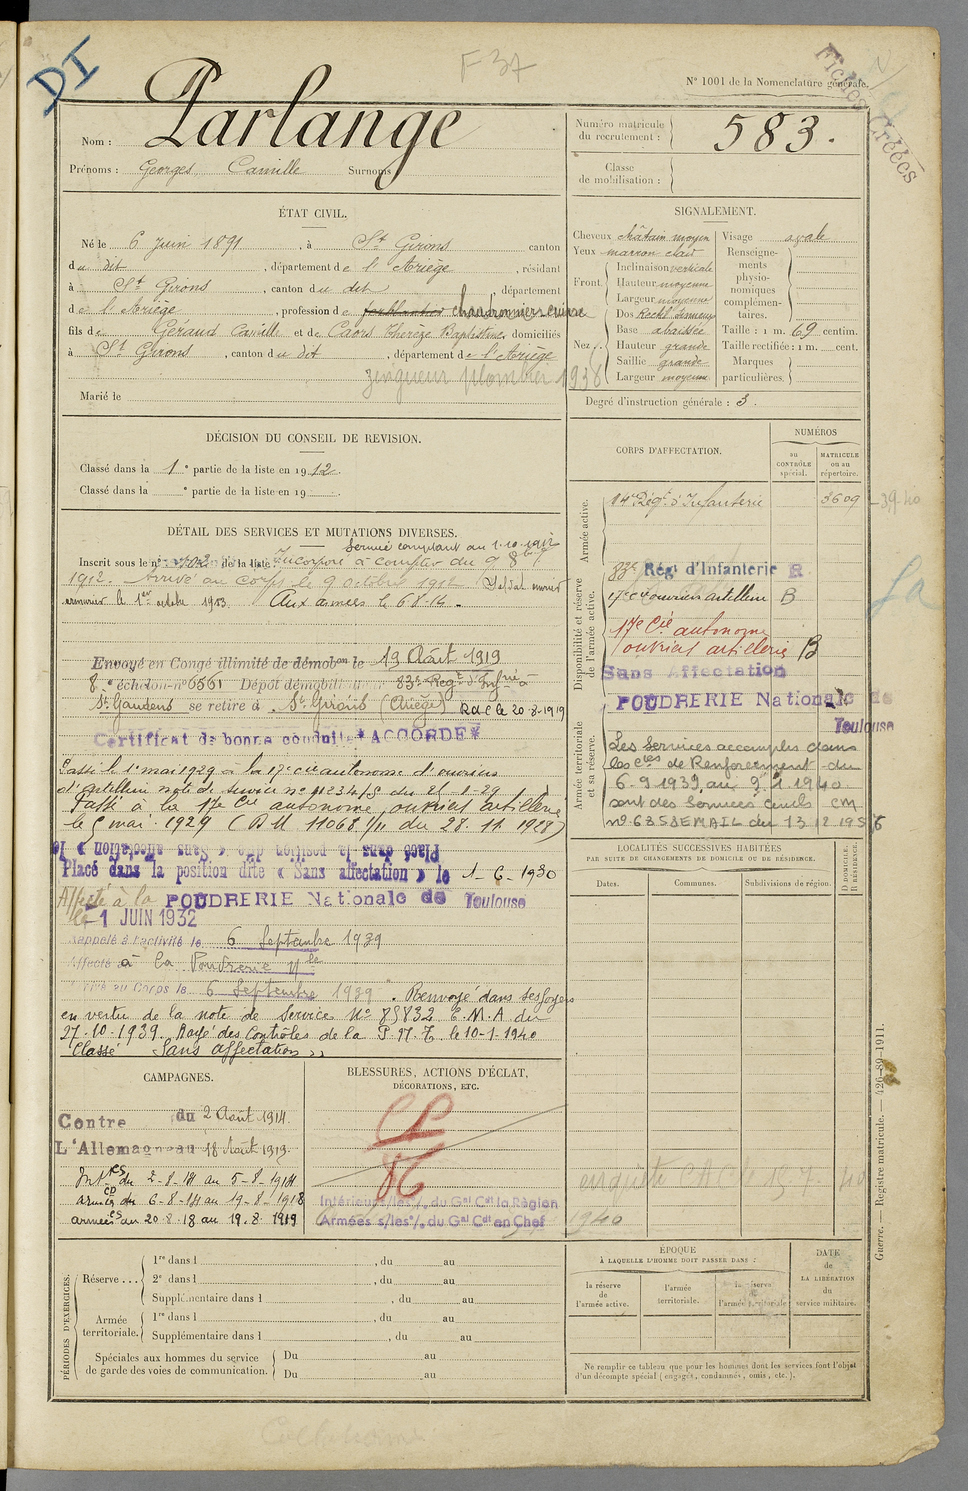 DI
F 37
N° 1001 de la Nomenclature générale.
Fiches Créées
Nom : Parlange
Prénoms : Georges Camille Surnoms
Numéro matricule du recrutement : 583.
Classe de mobilisation :
ÉTAT CIVIL.
Né le 6 Juin 1891, à St Girons canton
du dit, département de l'Ariège, résidant
à St Girons, canton du dit, département
de l'Ariège, profession de ferblantier chaudronnier cuivre
fils de Géraud Camille et de Caors Thérèze Baptistine, domiciliés
à St Girons, canton du dit, département de l'Ariège
zingueur plombier 1936
Marié le
SIGNALEMENT.
Cheveux châtain moyen
Yeux marron clair
Front. Inclinaison verticale
Hauteur moyenne
Largeur moyenne
Nez. Dos Rectil. sinueux
Base abaissée
Hauteur grande
Saillie grande
Largeur moyenne
Visage ovale
Renseignements physionomiques complémentaires.
Taille : 1 m. 69 centim.
Taille rectifiée : 1 m. cent.
Marques particulières.
Degré d'instruction générale : 3.
DÉCISION DU CONSEIL DE REVISION.
Classé dans la 1e partie de la liste en 1912.
Classé dans la e partie de la liste en 19
DÉTAIL DES SERVICES ET MUTATIONS DIVERSES.
Service comptant du 1-10-1912
Inscrit sous le n° de la liste Incorporé à compter du 9 8bre
1912. Arrivé au corps le 9 octobre 1912 Soldat ouvrier
armurier le 1er octobre 1913. Aux armées le 6 8 14.
Envoyé en Congé illimité de démobon le 19 Août 1919
8e échelon n° 6561 Dépôt démobilisateur 83e Régt d'Infrie à
St Gaudens se retire à St Girons (Ariège) RdC le 20-8-1919
Certificat de bonne conduite "ACCORDÉ"
Passé le 1er mai 1929 à la 17e cie autonome d'ouvriers
d'artillerie note de service n° 11234/S du 25-1-29
Passé à la 17e Cie autonome ouvriers artillerie
le 5 mai 1929 (BM 11068 1/11 du 28.11.1928)
Placé dans la position dite « Sans affectation » le
Placé dans la position dite « Sans affectation » le 1-6-1930
Affecté à la POUDRERIE Nationale de Toulouse
le -1 JUIN 1932
Rappelé à l'activité le 6 Septembre 1939
Affecté à la Poudrerie Nle
Arrivé au Corps le 6 Septembre 1939. Renvoyé dans ses foyers
en vertu de la note de Service N° 85832 E.M.A du
27-10-1939. Rayé des Contrôles de la P.N.T. le 10-1-1940
Classé "Sans affectation"
CORPS D'AFFECTATION.
NUMÉROS
au CONTRÔLE spécial.
MATRICULE ou au répertoire.
Armée active.
14e Régt d'Infanterie 3609
39-40
Disponibilité et réserve de l'armée active.
83e Régt d'Infanterie R
17e Cie ouvriers artillerie B
17e Cie autonome
ouvriers artillerie B
Sans Affectation
POUDRERIE Nationale de
Toulouse
Armée territoriale et sa réserve.
Les Services accomplis dans
les Cies de Renforcement du
6-9-1939 au 9-1-1940
sont des services civils CM
n° 6353 EMAIL du 13 12 1956
LOCALITÉS SUCCESSIVES HABITÉES
PAR SUITE DE CHANGEMENTS DE DOMICILE OU DE RÉSIDENCE.
Dates.
Communes.
Subdivisions de région.
D DOMICILE. R RÉSIDENCE.
CAMPAGNES.
Contre du 2 Août 1914
L'Allemagne au 18 Août 1919
Intres du 2-8-14 au 5-8-1914
armées du 6-8-14 au 19-8-1918
armées au 20-8-18 au 19-8-1919
BLESSURES, ACTIONS D'ÉCLAT,
DÉCORATIONS, ETC.
Intérieurs/les°/, du Gal Cdt la Région
Armées s/les°/, du Gal Cdt en Chef
1940
ÉPOQUE
À LAQUELLE L'HOMME DOIT PASSER DANS :
la réserve de l'armée active.
l'armée territoriale.
la réserve de l'armée territoriale
DATE de LA LIBÉRATION du service militaire.
Ne remplir ce tableau que pour les hommes dont les services font l'objet
d'un décompte spécial (engagés, condamnés, omis, etc.).
PÉRIODES D'EXERCICES.
Réserve ... 1re dans l , du au
2e dans l , du au
Supplémentaire dans l , du au
Armée territoriale. 1re dans l , du au
Supplémentaire dans l , du au
Spéciales aux hommes du service Du au
de garde des voies de communication. Du au
Guerre. — Registre matricule. — 426-89-1911.